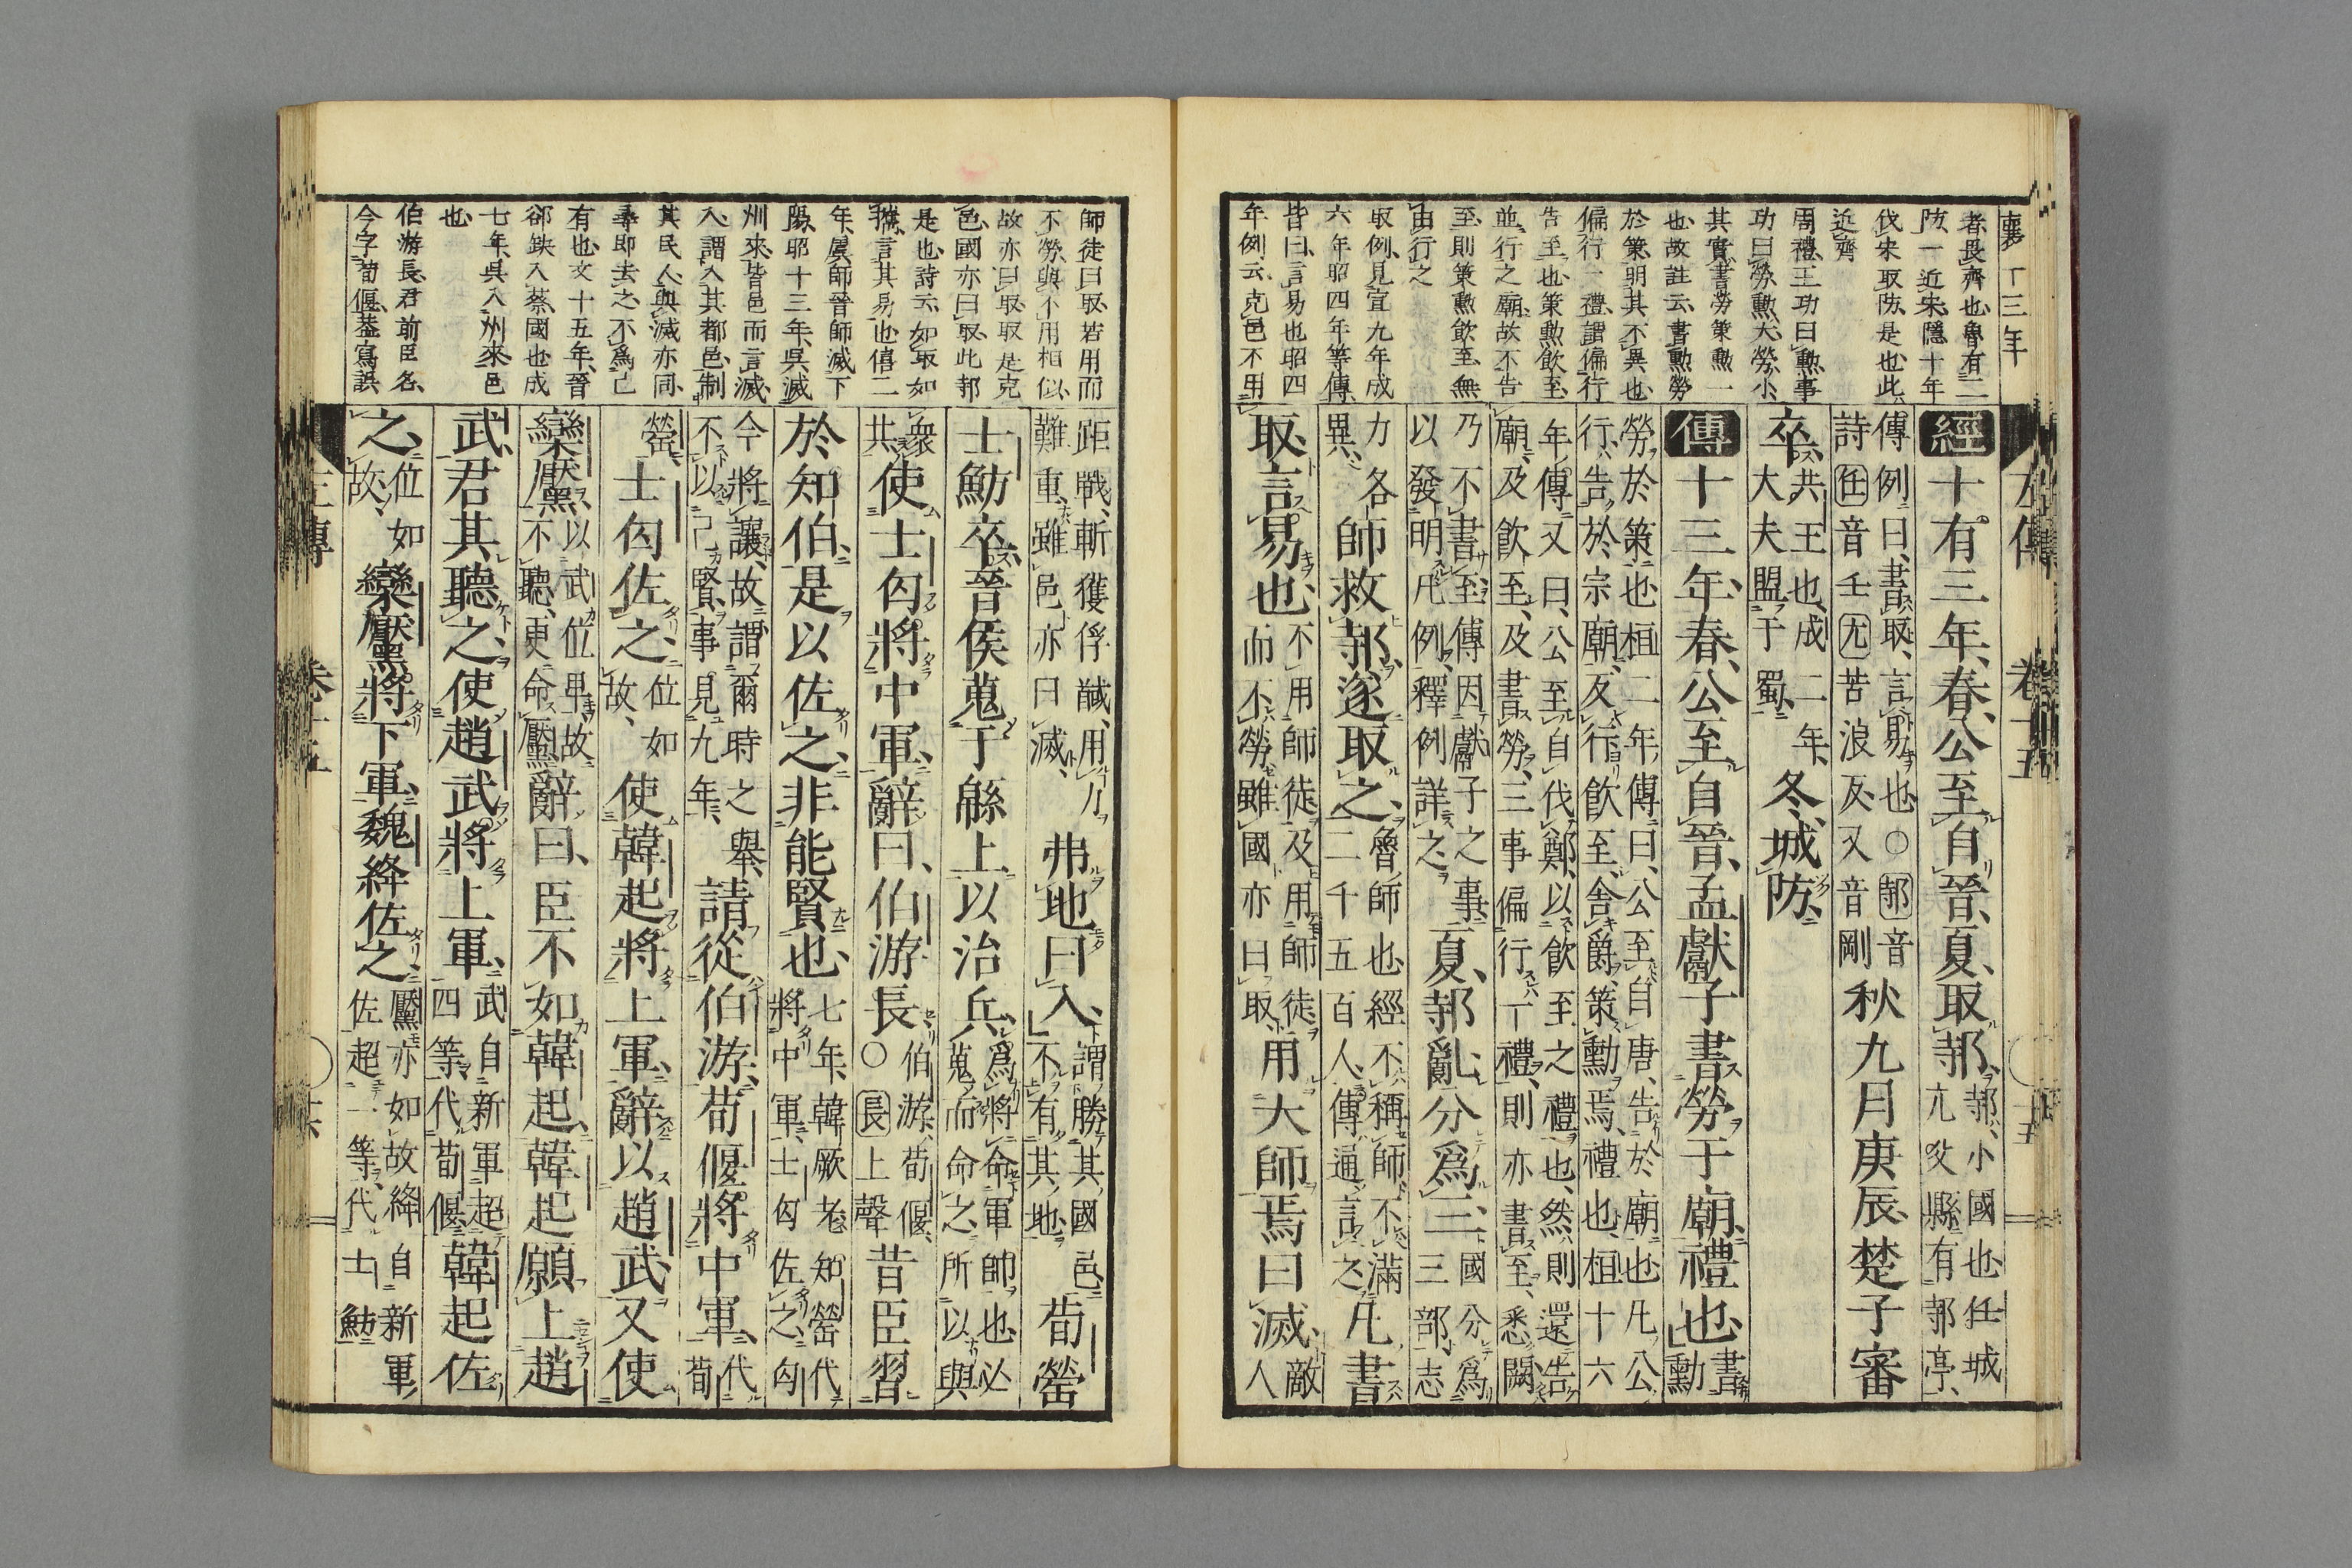 襄十三年
者長齊也魯有二
防一近宋隱十年
伐宋取防是也此
近齊
周禮王功曰勲事
功曰勞勲大勞小
其實書勞策勲一
也故註云書勲勞
於策明其不異也
偏行一禮謂偏行
告至也策勲飲至
並行之廟故不告
至則策勲飲至無
由行之
取例見宣九年成
六年昭四年等傳
皆曰言易也昭四
年例云克邑不用
左傳 卷十五 十五
經十有三年春公至自晉夏取邿
邿小國也任城
亢父縣有邿亭
傳例曰書取言易也〇邿音
詩任音壬亢苦浪反又音剛
秋九月庚辰楚子審
卒
共王也成二年
大夫盟于蜀
冬城防
傳十三年春公至自晉孟獻子書勞于廟禮也
書
勲
勞於策也桓二年傳曰公至自唐告於廟也凡公
行告於宗廟反行飲至舍爵策勲焉禮也桓十六
年傳又曰公至自伐鄭以飲至之禮也然則還告
廟及飲至及書勞三事偏行一禮則亦書至悉闕
乃不書至傳因獻子之事
以發明凡例釋例詳之
夏邿亂分爲三
國分爲
三部志
力各
異
師救邿遂取之
魯師也經不稱師不滿
二千五百人傳通言之
凡書
取言易也
不用師徒及用師徒
而不勞雖國亦曰取
用大師焉曰滅
敵
人
師徒曰取若用而
不勞與不用相似
故亦曰取取是克
邑國亦曰取此邿
是也詩云如取如
攜言其易也僖二
年虞師晉師滅下
陽昭十三年吳滅
州來皆邑而言滅
入謂入其都邑制
其民人與滅亦同
尋即去之不爲己
有也文十五年晉
郤缺入蔡國也成
七年吳入州來邑
也
伯游長君前臣名
今字荀偃葢寫誤
距戰斬獲俘馘用力
難重雖邑亦曰滅
弗地曰入
謂勝其國邑
不有其地
荀罃
士魴卒晉侯蒐于緜上以治兵
爲將命軍帥也必
蒐而命之所以與
衆
共
使士匄將中軍辭曰伯游長
伯游荀偃
〇長上聲
昔臣習
於知伯是以佐之非能賢也
七年韓厥老知罃代
將中軍士匄佐之匄
今將讓故謂爾時之舉
不以己賢事見九年
請從伯游荀偃將中軍
代
荀
罃
士匄佐之
位如
故
使韓起將上軍辭以趙武又使
欒黶
以武位卑故
不聽更命黶
辭曰臣不如韓起韓起願上趙
武君其聽之使趙武將上軍
武自新軍超
四等代荀偃
韓起佐
之
位如
故
欒黶將下軍魏絳佐之
黶亦如故絳自新軍
佐超一等代士魴